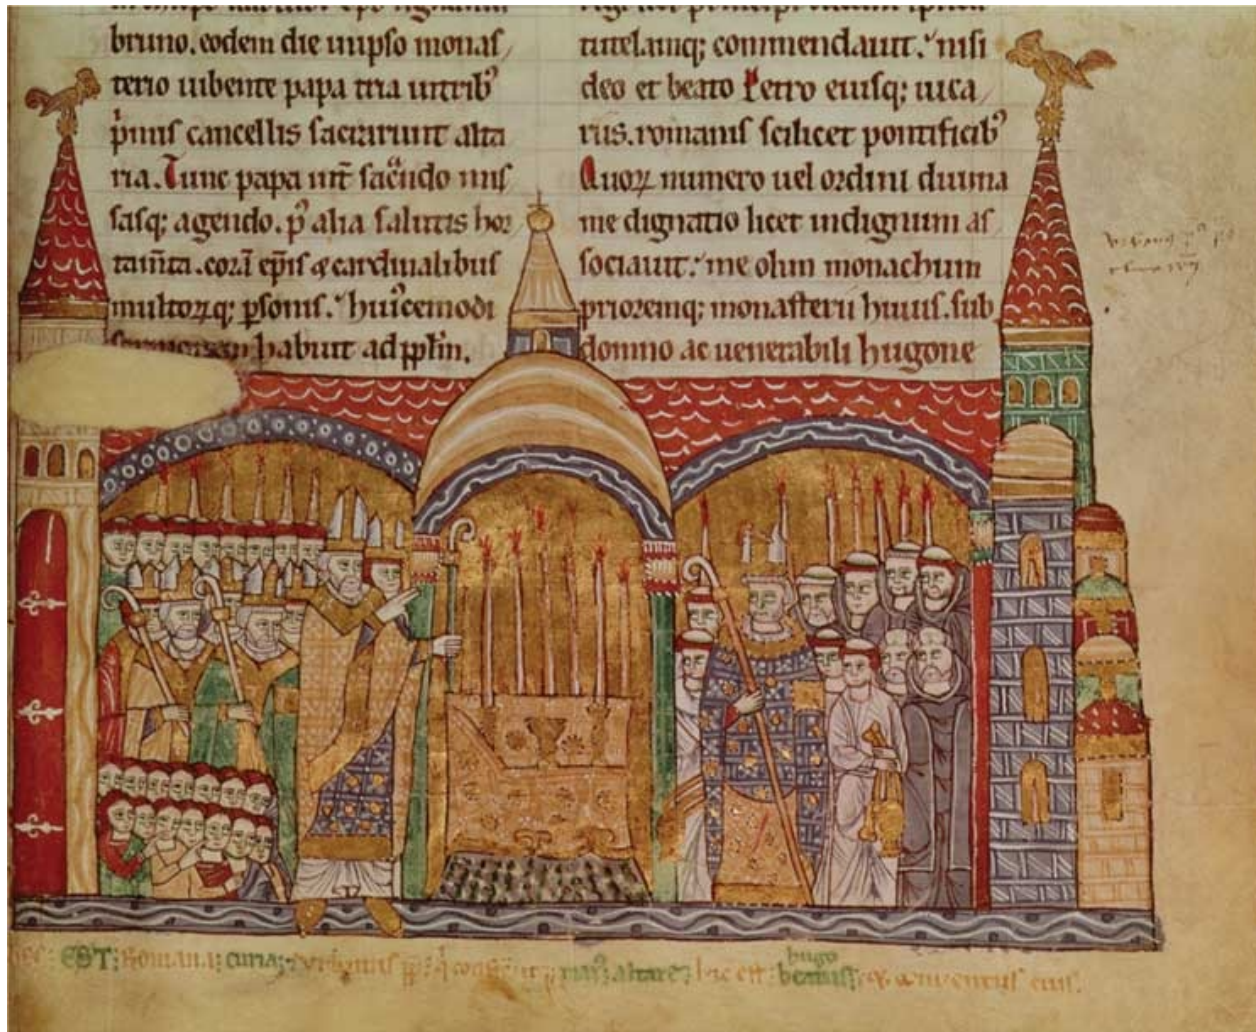 bruno. eodem die inipso monas/
terio iubente papa tria intribꝰ
pͥmis cancellis sacrarunt alta
ria. Tunc papa int̄ sacᵃndo mis/
sasq; agendo. p̄ alia salutis hor/
tam̄ta. corā ep̄is & cardinalibus
multorꝝq; ꝑsonis. huicemodi
habuit ad pplm̄.
tutelamq; commendauit. nisi
deo et beato Petro eiusq; uica/
riis. romanis scilicet pontificibꝰ
Quorꝝ numero uel ordini diuina
me dignatio licet indignum as/
sociauit. me olim monachum
prioremq; monasterii huius. sub
domno ac uenerabili hugone
EST: Romana: curia: altare: hic est: hugo & conuentus eius.